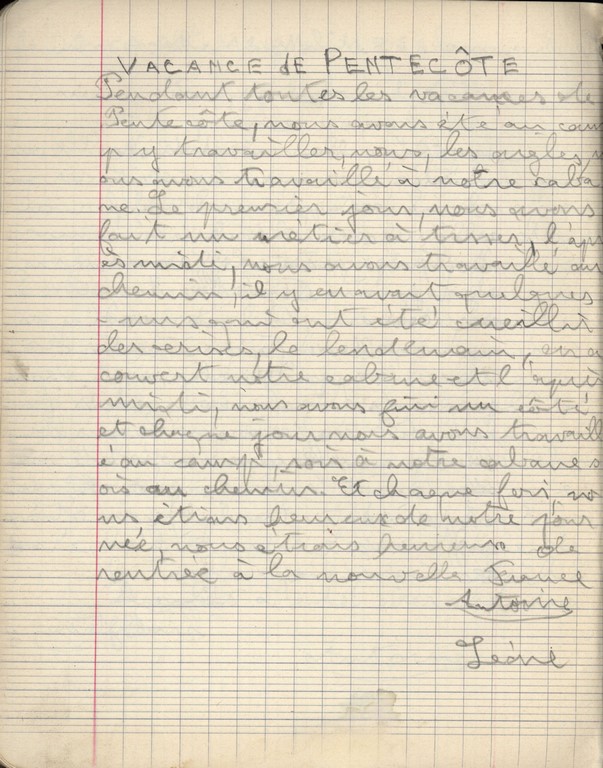 VACANCE de PENTECÔTE
Pendant toutes les vacances de
Pentecôte, nous avons été au cam
p y travailler, nous, les aigles, n
ous avons travaillé à notre caba
ne. Le premier jour, nous avons
fait un métier à tisser, l'apr
ès midi, nous avons travaillé au
chemin, il y en avait quelques
- uns qui ont été cueillir
des cerises, le lendemain, on a
couvert notre cabane et l'après
midi, nous avons fini un côté,
et chaque jour nous avons travaill
é au camp, sois à notre cabane s
ois au chemin. Et chaque fois, no
us, étions heureux de notre jour
née, nous étrais heureux de
rentrée à la nouvelle France
Antoine